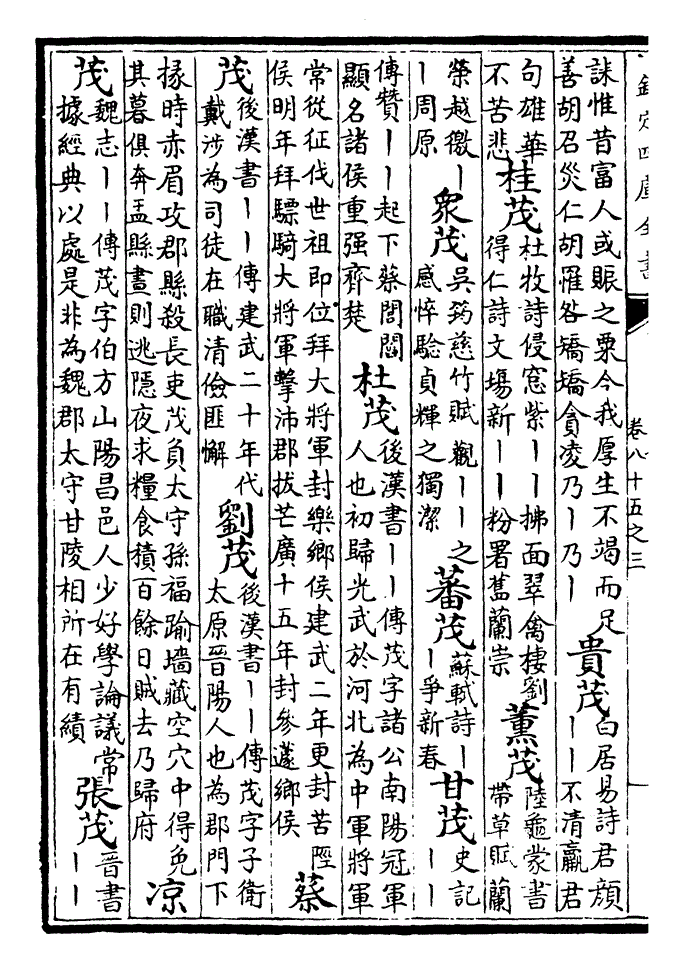 欽定四庫全書
卷八十五之三
誅惟昔富人或賑之粟今我厚生不竭而足
善胡召災仁胡罹咎矯矯貪凌乃丨乃丨
貴茂
白居易詩君顔
丨丨不清羸君
句雄華
不苦悲
桂茂
杜牧詩侵窓紫丨丨拂面翠禽棲劉
得仁詩文場新丨丨粉署舊蘭崇
薫茂
陸龜蒙書
帶草賦蘭
榮越徼丨
丨周原
衆茂
吳筠慈竹賦觀丨丨之
感悴驗貞輝之獨潔
蕃茂
蘇軾詩丨
丨爭新春
甘茂
史記
丨丨
傳贊丨丨起下蔡閭閻
顯名諸侯重强齊楚
杜茂
後漢書丨丨傳茂字諸公南陽冠軍
人也初歸光武於河北為中軍將軍
常從征伐世祖即位拜大將軍封樂鄉侯建武二年更封苦陘
侯明年拜驃騎大將軍擊沛郡拔芒廣十五年封參蘧鄉侯
蔡
茂
後漢書丨丨傳建武二十年代
戴涉為司徒在職清儉匪懈
劉茂
後漢書丨丨傳茂字子衛
太原晉陽人也為郡門下
掾時赤眉攻郡縣殺長吏茂負太守孫福踰墻藏空穴中得免
其暮俱奔盂縣晝則逃隱夜求糧食積百餘日賊去乃歸府
凉
茂
魏志丨丨傳茂字伯方山陽昌邑人少好學論議常
據經典以處是非為魏郡太守甘陵相所在有績
張茂
晉書
丨丨